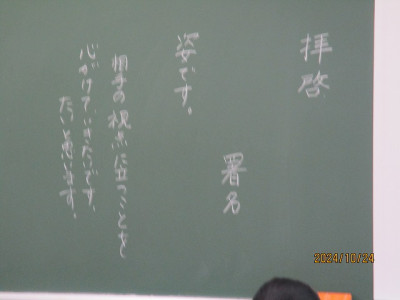 拝啓
署名
姿です。
相手の視点に立つことを
心がけていきたいです、
たいと思います。
2024/10/24